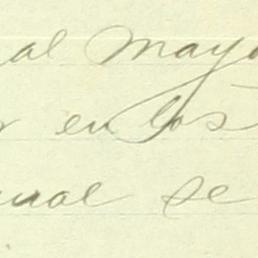 al mayo
r en los
ual se